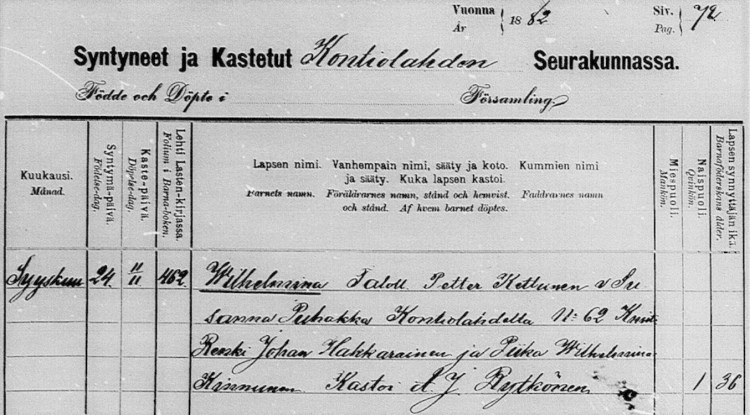 Vuonna
År
1882
Siv.
Pag.
72
Syntyneet ja Kastetut Kontiolahden Seurakunnassa.
Födde och Döpte i Församling.
Kuukausi.
Månad.
Syntymä-päivä.
Födelse-dag.
Kaste-päivä.
Döpelse-dag.
Lehti Lasten-kirjassa.
Folium i Barna-boken.
Lapsen nimi. Vanhempain nimi, sääty ja koto. Kummien nimi
ja sääty. Kuka lapsen kastoi.
Barnets namn. Föräldrarnes namn, stånd och hemvist. Faddrarnes namn
och stånd. Af hvem barnet döptes.
Miespuoli.
Mankön.
Naispuoli.
Qvinkön.
Lapsen synnyttäjän ikä.
Barnaföderskans ålder.
Syyskuu 24 11/11 462 Wilhelmina Taloll. Petter Kettunen v Su
sanna Puhakka Kontiolahdelta N:o 62
Renki Johan Hakkarainen ja Piika Wilhelmina
Kinnunen Kastoi A J Rytkönen 1 36